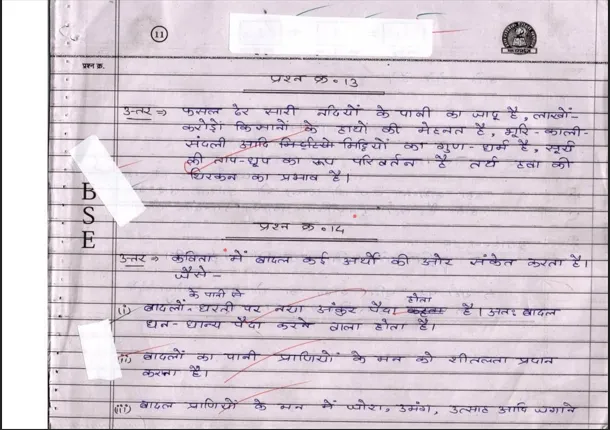 11
प्रश्न क्र.
प्रश्न क्र॰ 13
उत्तर ⇒ फसल ढेर सारी नदियों के पानी का जादू है, लाखों-
करोड़ो किसानों के हाथों की मेहनत है, भूरि-काली-
संदली आदि मिट्टियों का गुण-धर्म है, सूर्य
की ताप-धूप का रूप परिवर्तन है तथे हवा की
थिरकन का प्रभाव है।
B
S
E
प्रश्न क्र॰ 14
उत्तर ⇒ कविता में बादल कई अर्थो की ओर संकेत करता है।
जैसे -
के पानी से
होता
(i) बादलों धरती पर नया अंकुर पैदा है। अतः बादल
धन-धान्य पैदा करने वाला होता है।
(ii) बादलों का पानी प्राणियों के मन को शीतलता प्रदान
करता है।
(iii) बादल प्राणियों के मन में जोश, उमंग, उत्साह आदि जगाने